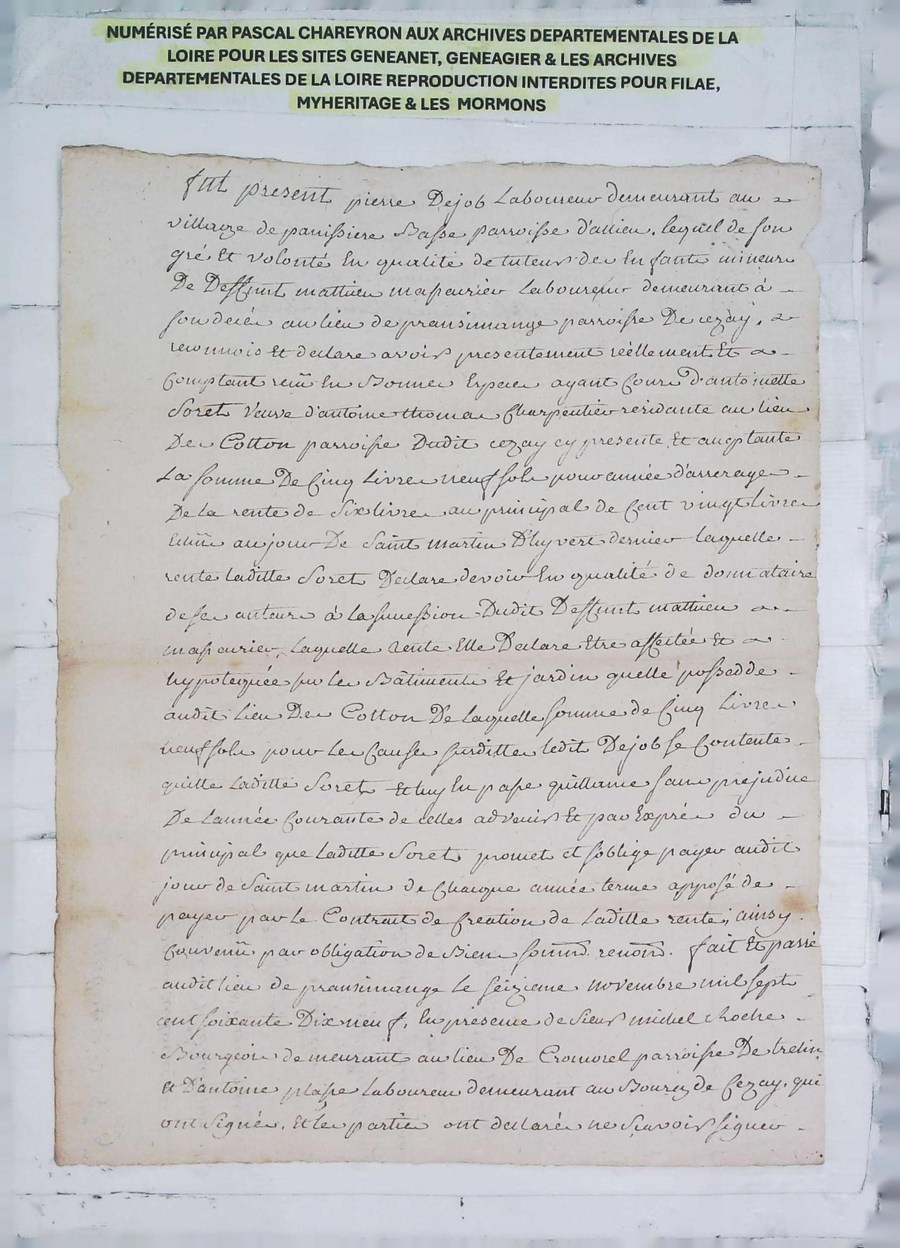 NUMÉRISÉ PAR PASCAL CHAREYRON AUX ARCHIVES DEPARTEMENTALES DE LA
LOIRE POUR LES SITES GENEANET, GENEAGIER & LES ARCHIVES
DEPARTEMENTALES DE LA LOIRE REPRODUCTION INTERDITES POUR FILAE,
MYHERITAGE & LES MORMONS
fut present pierre Dejob Laboureur demeurant au
village de panissiere Basse parroisse d'allieu, lequel de son
gré Et volonté En qualité de tuteur des Enfants mineurs
De Deffunt mathieu laboureur demeurant à
son decés au lieu de pransimange parroisse De cezày,
reconnois Et declare avoir presentement réèllement Et
Comptant reçû En Bonnes Especes ayant Cours D'antoinette
Soret Veuve d'antoine thomas Charpentier residante au lieu
Des Cotton parroisse Dudit cezay cy presente Et acceptante
La somme De Cinq Livres neuf sols pour année d'arrerages
De La rente de Six livres au principal de Cent vingt Livres
Echûe au jour De Saint martin D'hyvert dernier laquelle
rente laditte Soret Declare devoir En qualité de donnataire
de ses auteurs à la succession Dudit Deffunt mathieu
laquelle rente Elle Declare Etre affectée Et
hypotequée sur les Bâtiments Et jardin quelle possedde
audit Lieu Des Cotton De laquelle somme de Cinq Livres
neuf sols pour les Causes surdittes ledit Dejob se Contente
quitte Laditte Soret Et luy En passe quittance sans prejudice
De L'année Courante de celles advenir Et par Exprés du
principal que Laditte Soret promet et s'oblige payer audit
jour de Saint martin de Chaque année terme apposé de
payer par le Contrat de Creation de Laditte rente; ainsy
Convenû par obligation de Biens soumd. renond. fait Et passé
audit lieu de pransimange le seizieme novembre mil sept
cent soixante Dix neuf, En presence de Sieur michel Roche
Bourgeois demeurant au lieu De Cromorel parroisse De trelin
Et D'antoine plasse Laboureur demeurant au Bourg de Cezay, qui
ont Signé, Et les parties ont declaré ne Scavoir signer